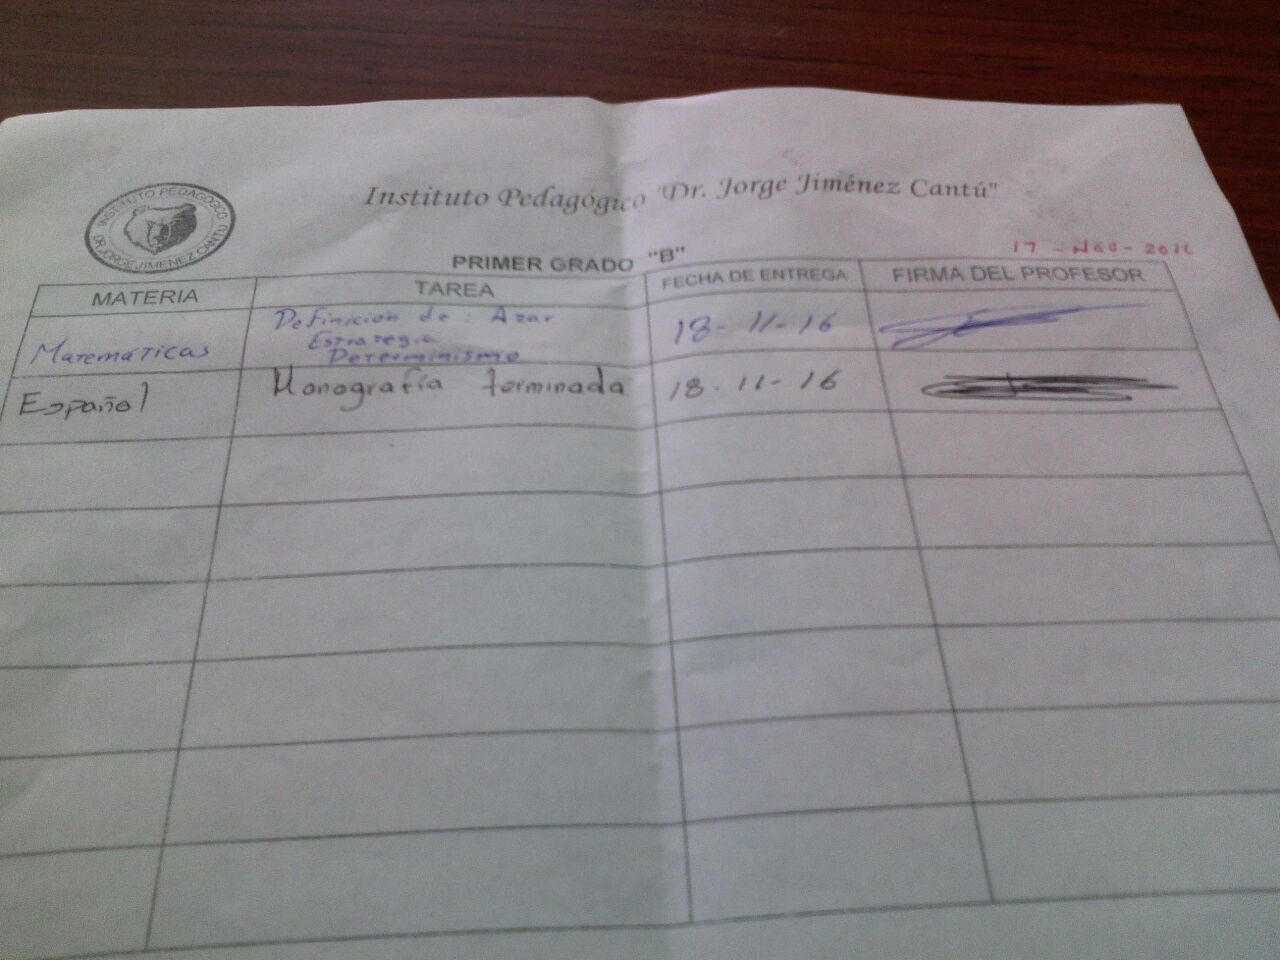 INSTITUTO PEDAGOGICO
DR. JORGE JIMENEZ CANTU
Instituto Pedagógico "Dr. Jorge Jiménez Cantú"
17 - Nov - 2016
PRIMER GRADO "B"
MATERIA TAREA FECHA DE ENTREGA FIRMA DEL PROFESOR
Matemáticas Definición de: Azar
Estrategia
Determinismo 18-11-16
Español Monografía terminada 18-11-16